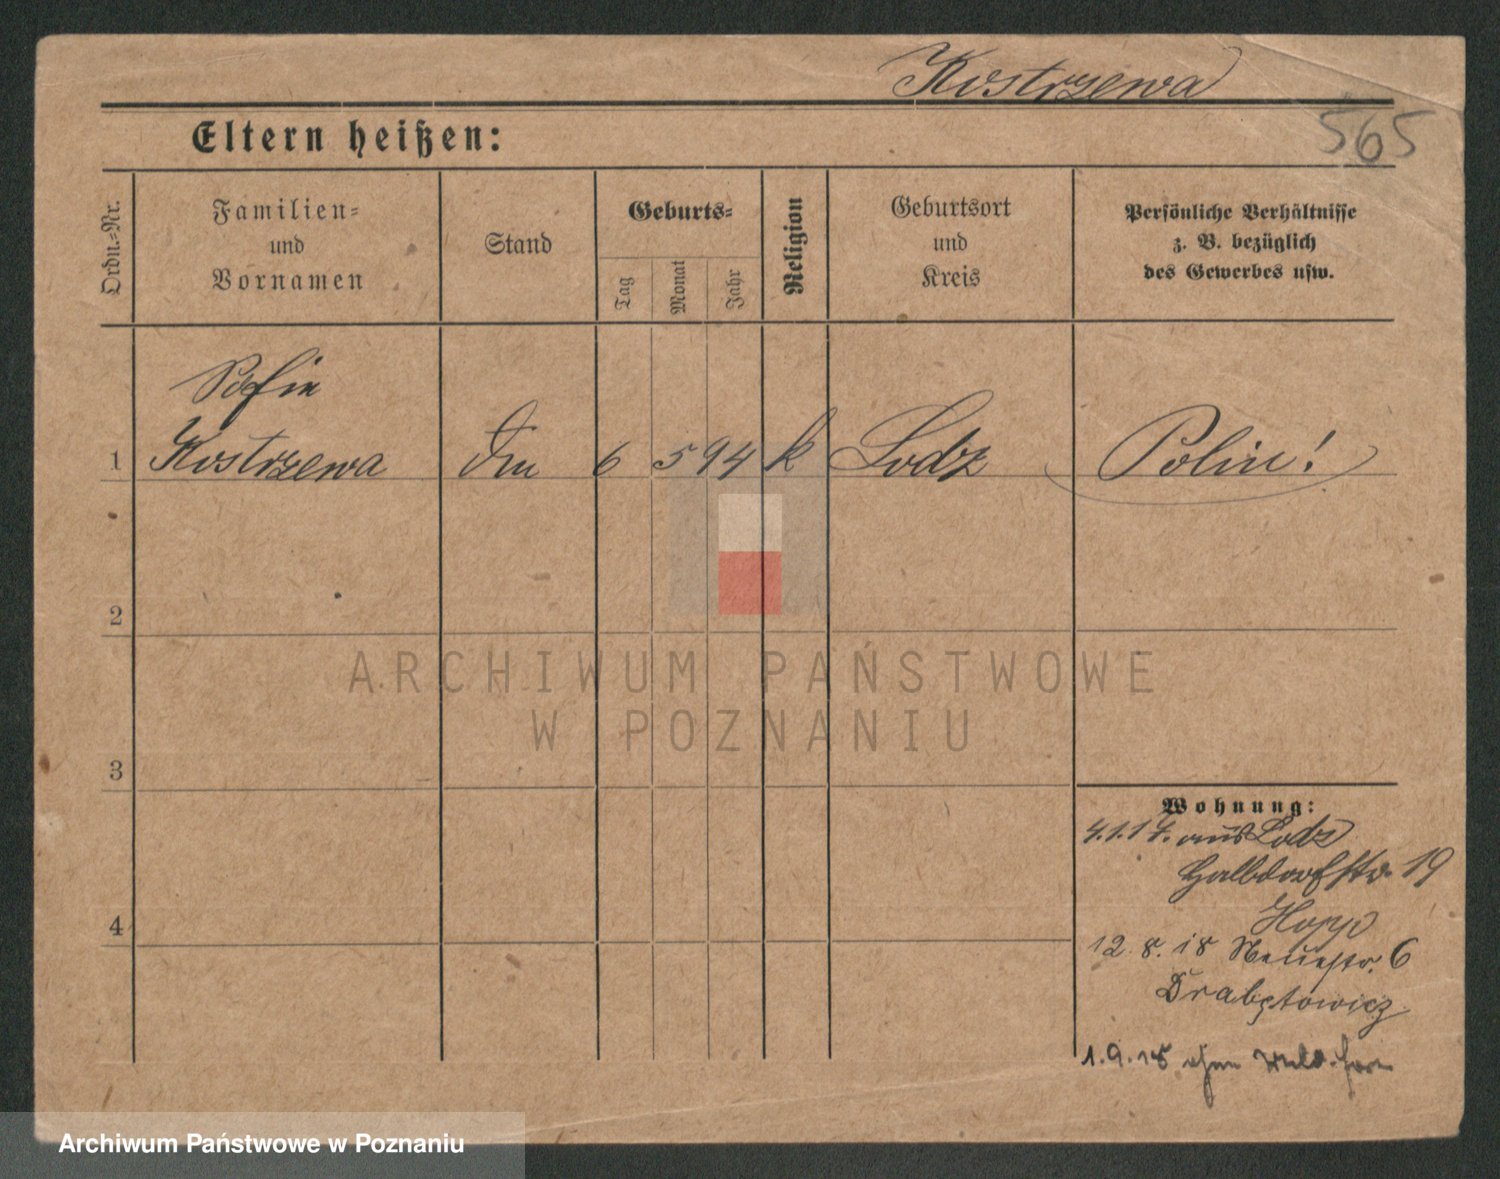 Kostrzewa
565
Eltern heißen:
Ordn.-Nr.
Familien-
und
Vornamen
Stand
Geburts-
Tag
Monat
Jahr
Religion
Geburtsort
und
Kreis
Persönliche Verhältnisse
z. B. bezüglich
des Gewerbes usw.
Sofie
1 Kostrzewa 6 5 94 k Lodz Polin!
2
ARCHIWUM PAŃSTWOWE
W POZNANIU
3
Wohnung:
4.1.17. aus Lodz
Halbdorfstr. 19
Hopp
4
12.8.18 Neuestr. 6
1.9.18 ohne
Archiwum Państwowe w Poznaniu